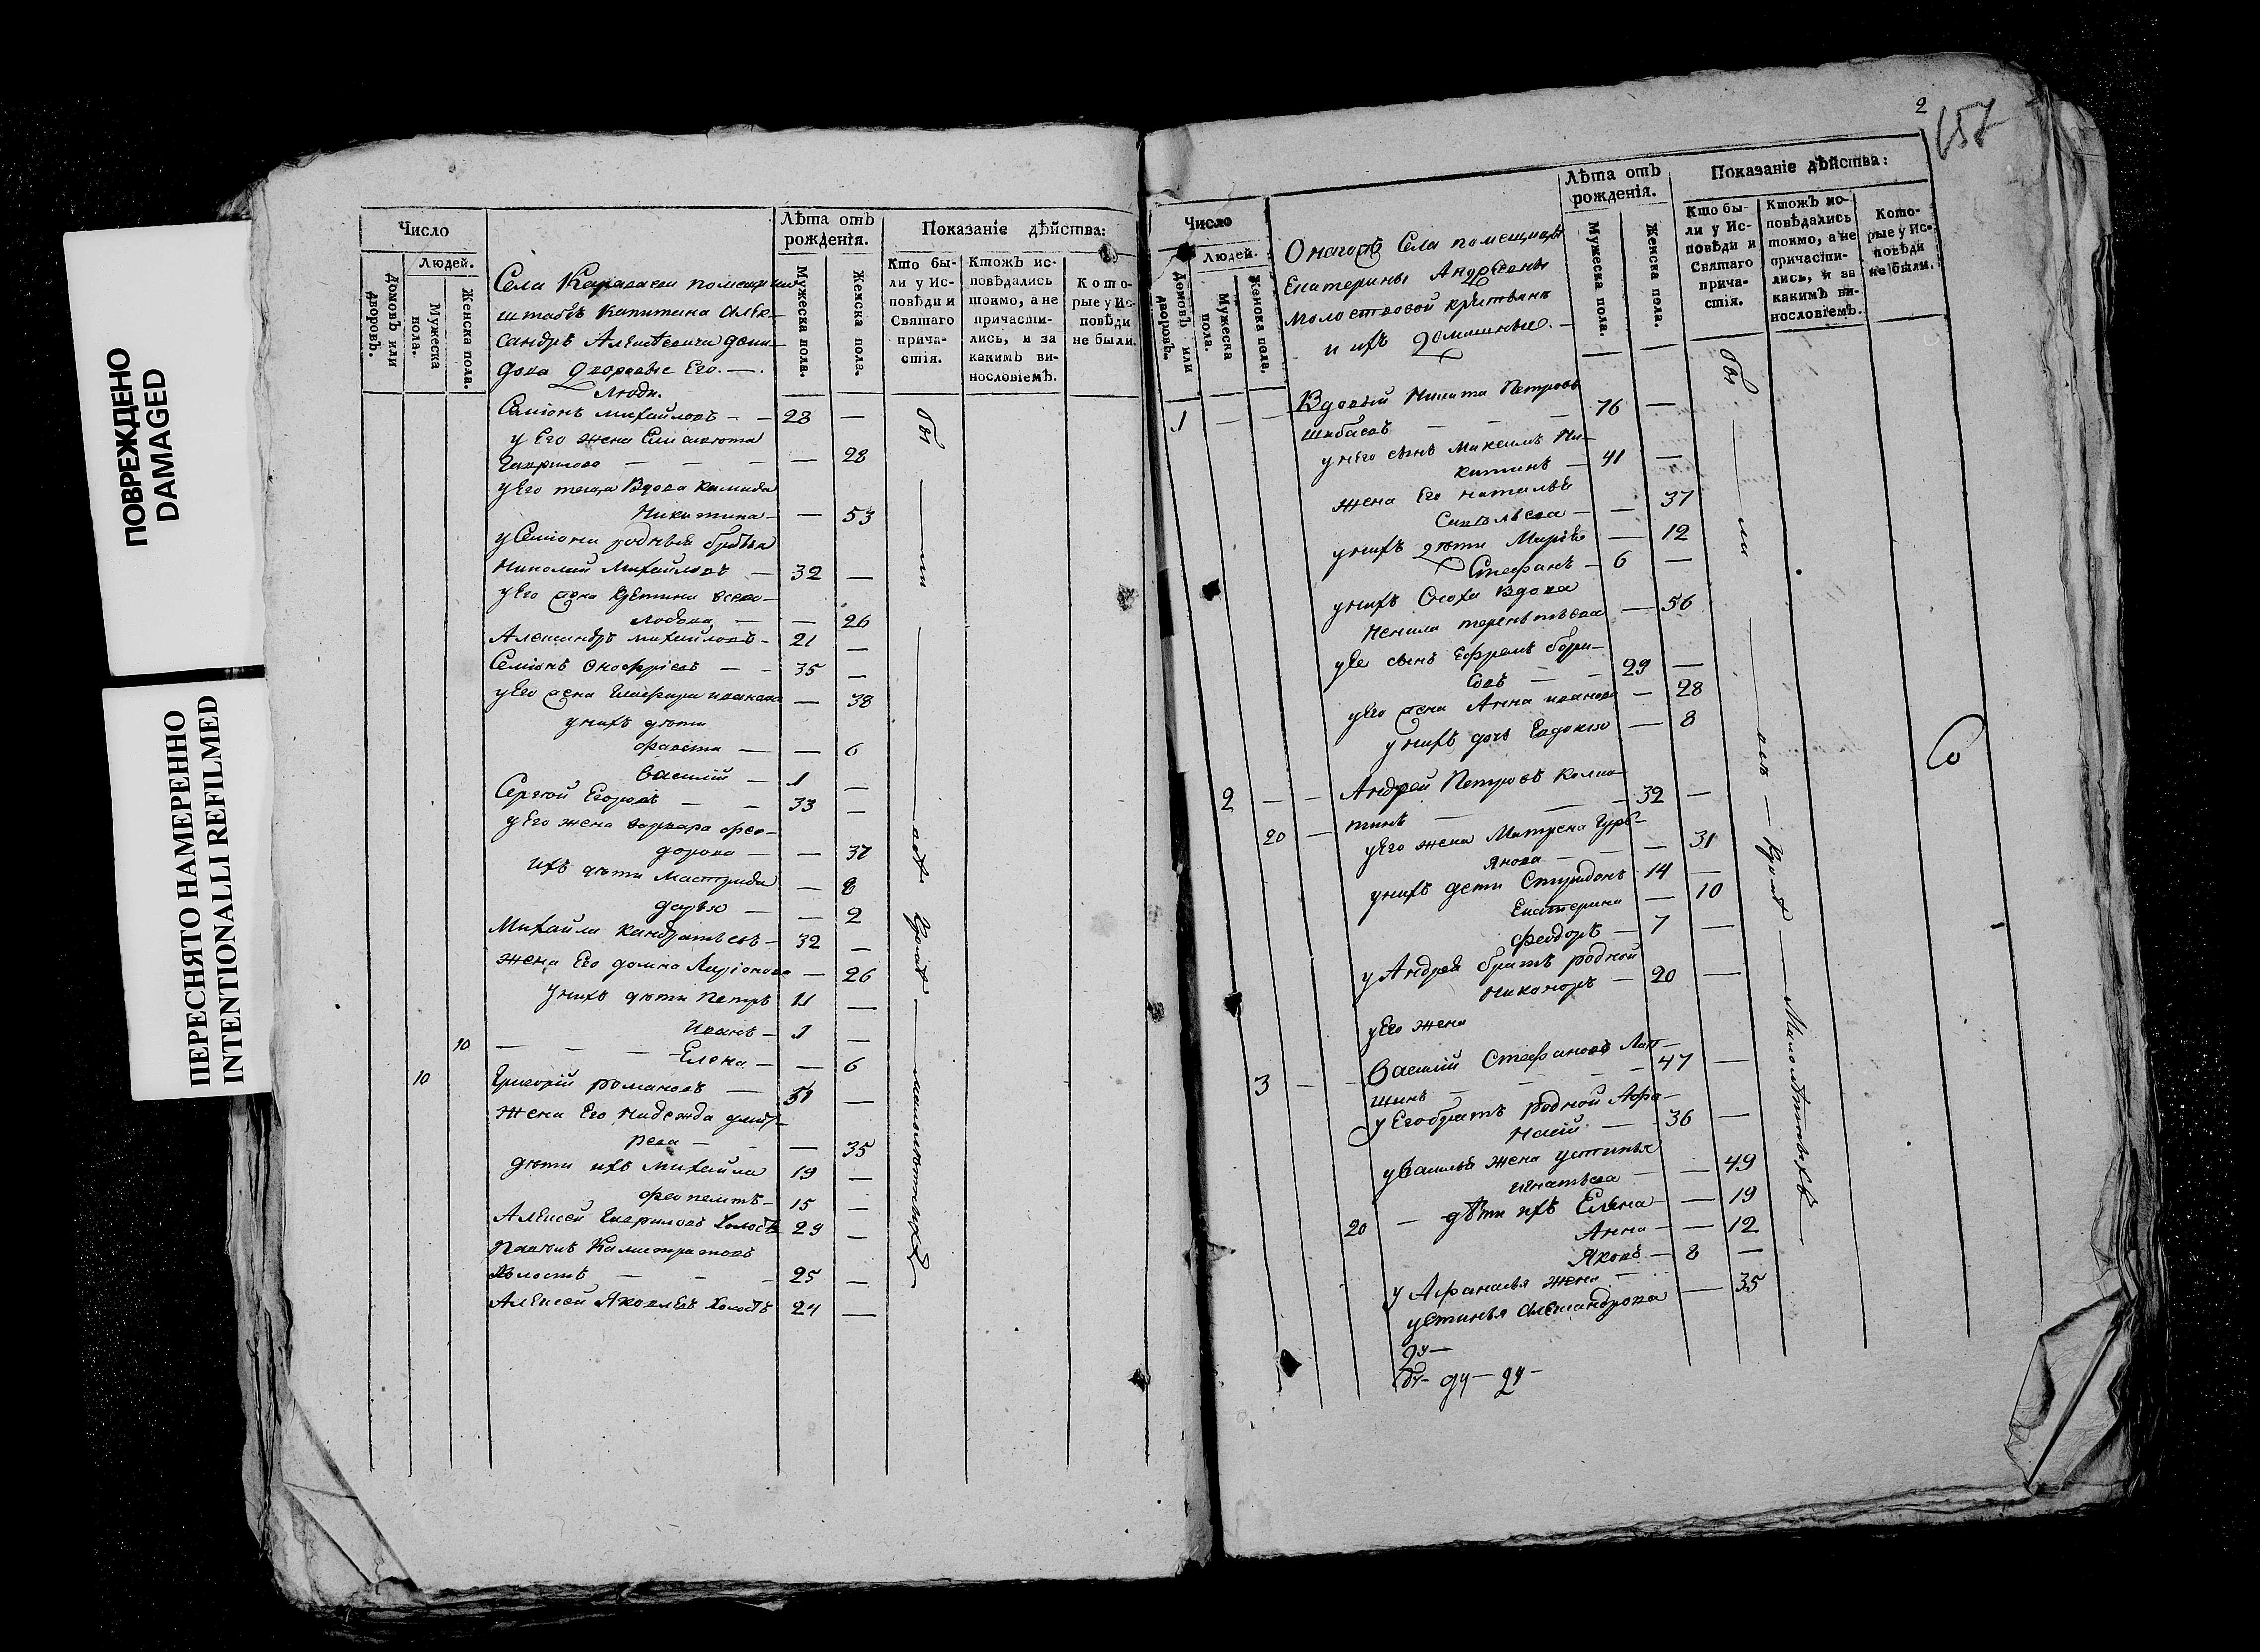 ПОВРЕЖДЕНО
DAMAGED
ПЕРЕСНЯТО НАМЕРЕННО
INTENTIONALLI REFILMED
Число
Людей.
Домовъ или дворовъ.
Мужеска пола.
Женска пола.
Села помещика
штабсъ Капитана Алек-
сандръ Алексѣевича
дворовые Его. —.
Люди.
Лѣта отъ рожденія.
Мужеска пола.
Женска пола.
Показаніе дѣйства:
Кто бы-
ли у Ис-
повѣди и
Святаго
прича-
стія.
Ктожъ ис-
повѣдались
токмо, а не
причасти-
лись, и за
какимъ ви-
нословіемъ.
Кото-
рые у Ис-
повѣди
не были.
Семіонъ Михайловъ — — 28 —
у Его жена Елисавета
Гаврилова — — — — 28
у Его теща Вдова
Никитина — — 53
у Семіона родныя братья
Николай Михайловъ — 32 —
у Его жена
— — 26
Александръ Михайловъ — 21 —
Семіонъ Онофріевъ — — 35 —
у Его жена Глафира Иванова — 38
у нихъ дѣти
— — 6
Василій — 1 —
Сергѣй Егоровъ — — 33 —
у Его жена Варвара Фео-
дорова — — 37
Ихъ дѣти — 8
Дарья — — 2
Михайла Кандратьевъ — 32 —
жена Его Домна Ларіонова — 26
у нихъ дѣти Петръ 11 —
Иванъ — 1 —
10 — — — Елена — — 6
10 Григорій Романовъ — 51 —
жена Его Надежда Дмит-
рева — — — 35
дѣти ихъ Михайла 19 —
15 —
Алексей Гавриловъ Холостъ 29 —
Павелъ Калистратовъ
Холостъ — — — 25 —
Алексей Яковлевъ Холостъ 24 —
бы — ли — Кромѣ — малолѣтныхъ
2
157
Число
Людей.
Домовъ или дворовъ.
Мужеска пола.
Женска пола.
Онагожъ Села помещицы
Екатерины Андреевны
Молоствовой крестьяне
и ихъ домашные. —
Лѣта отъ рожденія.
Мужеска пола.
Женска пола.
Показаніе дѣйства:
Кто бы-
ли у Ис-
повѣди и
Святаго
прича-
стія.
Ктожъ ис-
повѣдались
токмо, а не
причасти-
лись, и за
какимъ ви-
нословіемъ.
Кото-
рые у Ис-
повѣди
не были.
1 — — Вдовый Никита Петровъ
— — — 76 —
у него сынъ Максимъ Ни-
китинъ — 41 —
жена Его Наталья
Савельева — — 37
у нихъ дѣти Марія — 12
Стефанъ — 6 —
у нихъ Сноха Вдова
Ненила Терентьева — 56
у Ее сынъ Ефремъ Бори-
совъ — — 29 —
у Его жена Анна Иванова — 28
у нихъ дочь Евдокія — 8
2 — — Андрей Петровъ
20 — — — 32 —
у Его жена Матрена Гурь-
янова — — — 31
у нихъ дети Спиридонъ 14 —
Екатерина — 10
Феодоръ — 7 —
у Андрея братъ родной
Никаноръ — 20 —
у Его жена
3 — — Василій Стефановъ Лап-
шинъ — — — — 47 —
у Его братъ родной Афа-
насій — — 36 —
у Василья жена Устинья
Игнатьева — — 49
20 — дѣти ихъ Елена — — 19
Анна — — 12
Яковъ — 8 —
у Афанасья жена —
Устинья Александрова — 35
ду —
ду — ду —
бы — ли — Кромѣ — Малолѣтныхъ